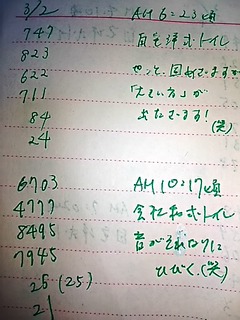 3/2 AM 6:23頃
747 自宅洋式トイレ
823
622 やっと固めですが
711 「大ていき」が
84 出たです! (笑)
24
6703 AM 10:17頃
4777 会社和式トイレ
8495 音がそれなりに
7945 ひびく(笑)
25 (25)
21